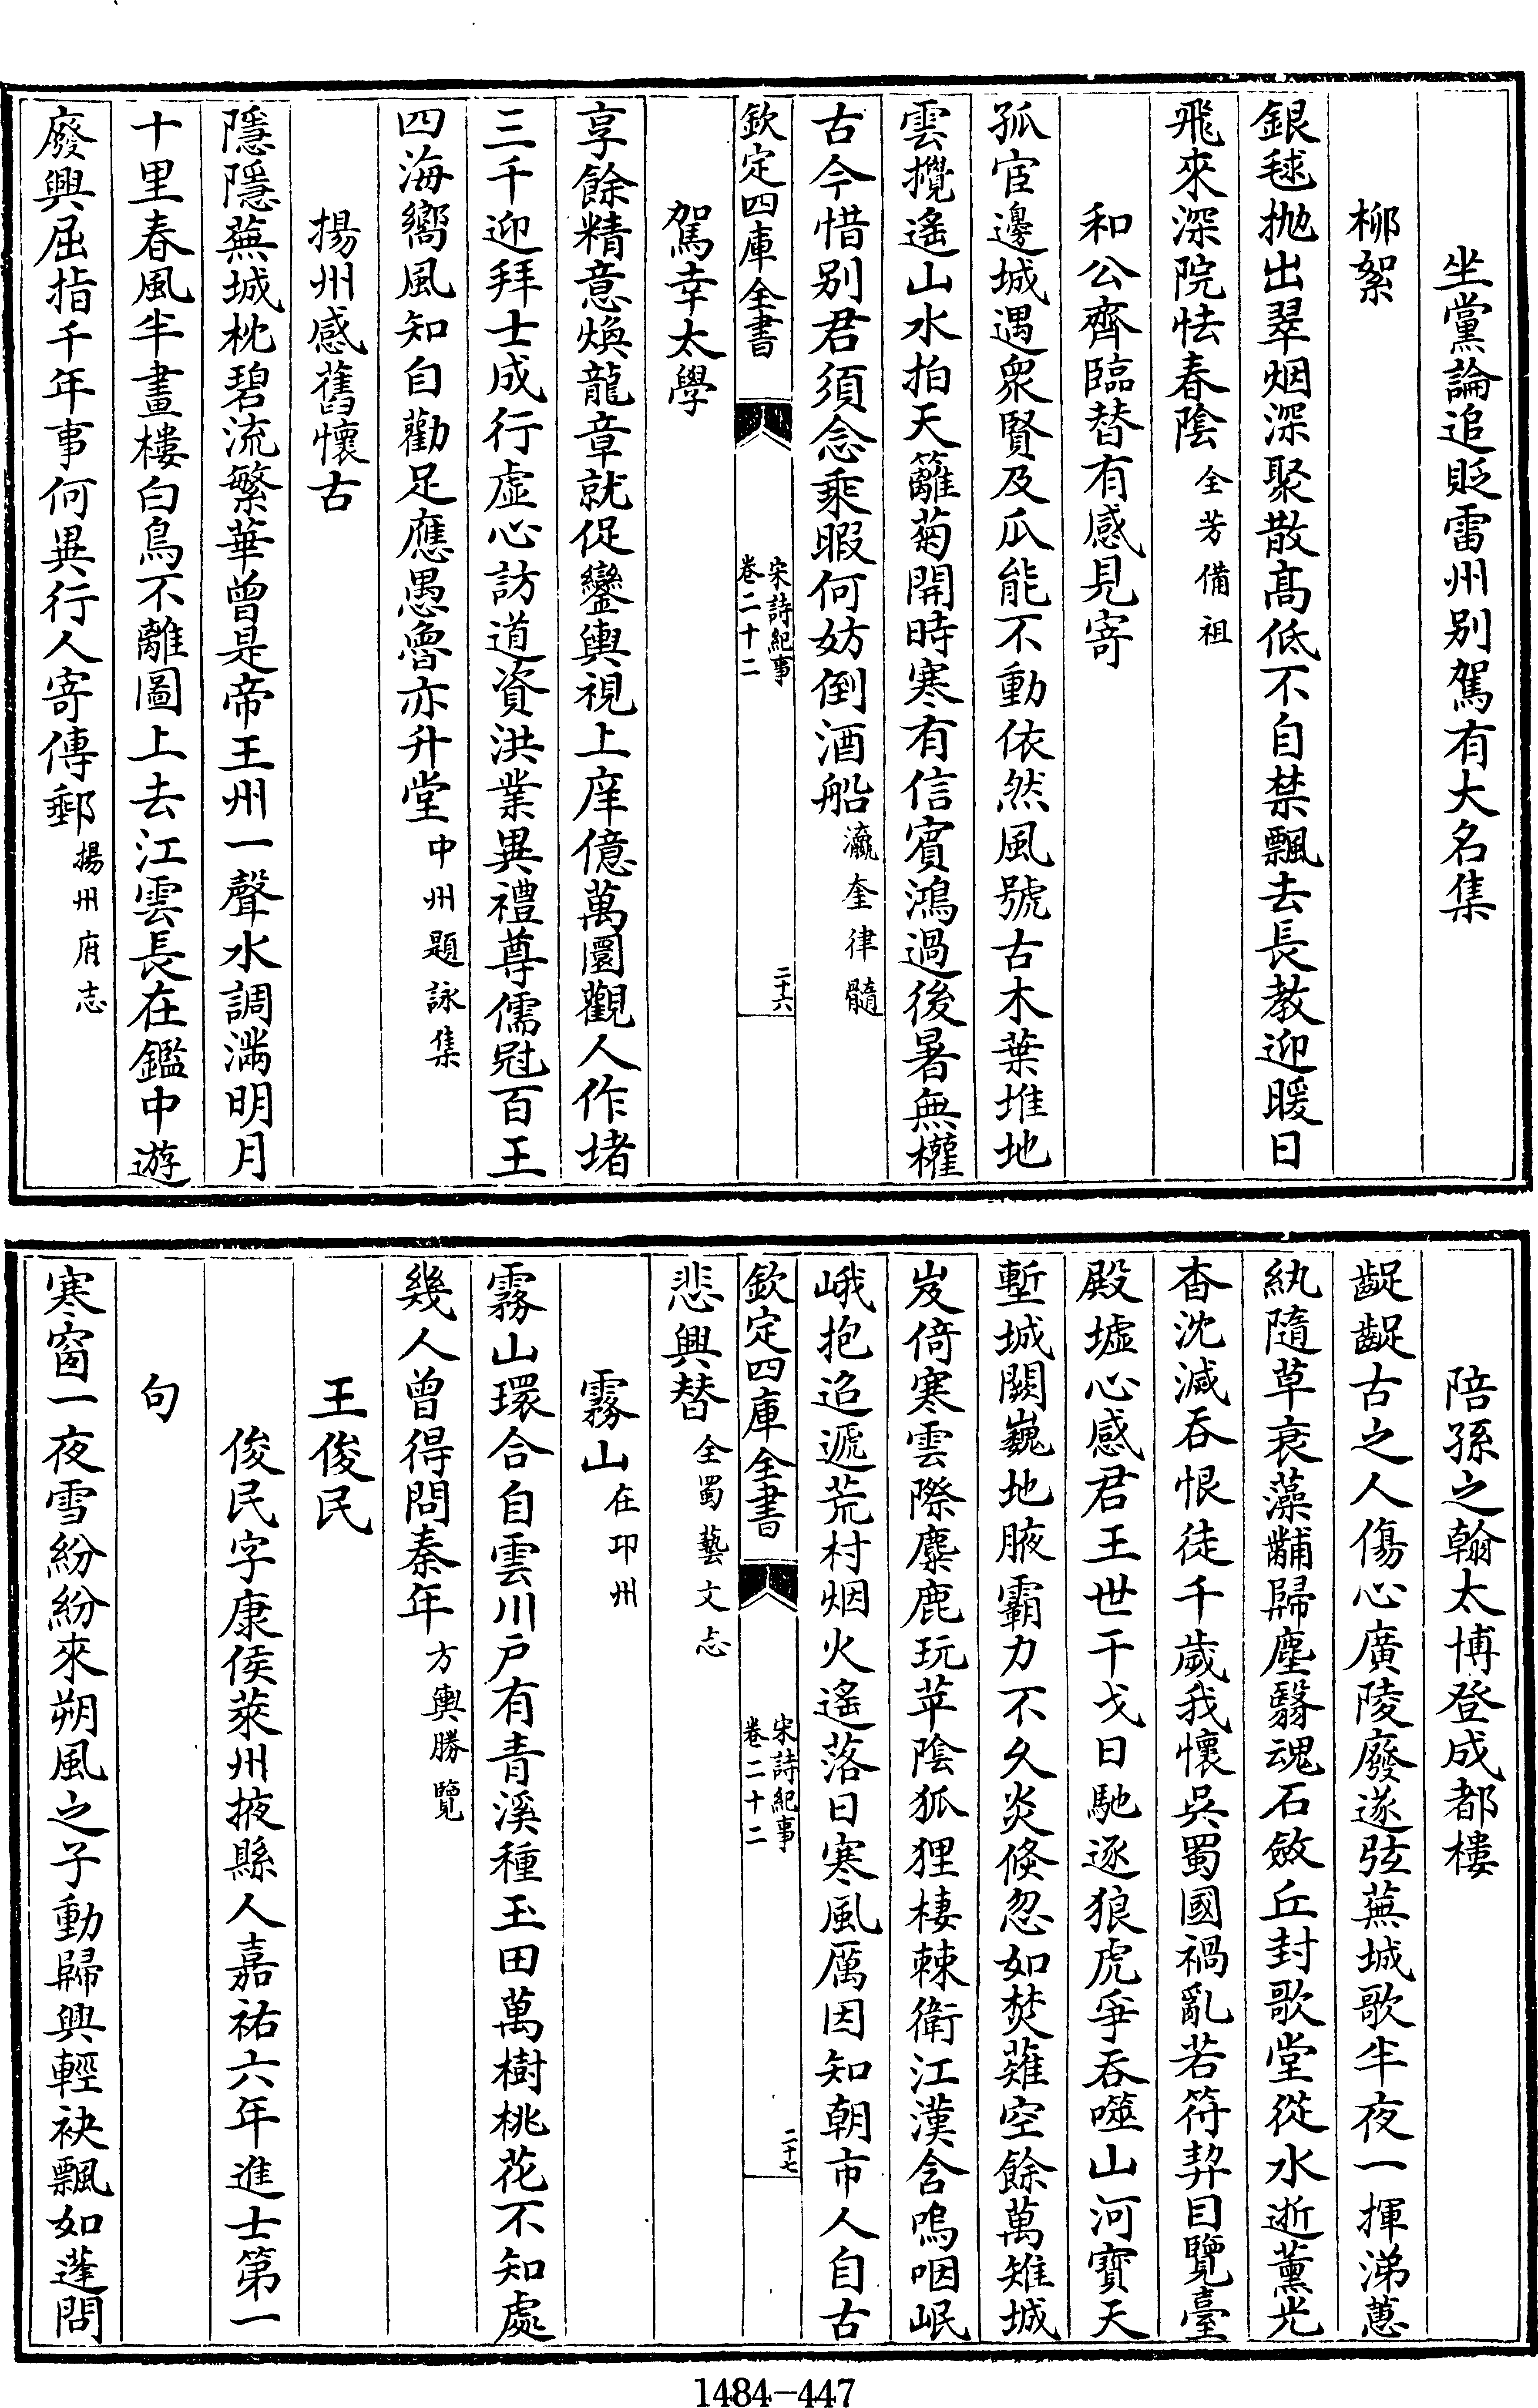 坐黨論追貶雷州别駕有大名集
柳絮
銀毬拋出翠烟深聚散髙低不自禁飄去長教迎暖日
飛來深院怯春陰全芳備祖
和公齊臨替有感見寄
孤宦邊城遇衆賢及瓜能不動依然風號古木葉堆地
雲攪遙山水拍天籬菊開時寒有信賓鴻過後暑無權
古今惜别君須念乘暇何妨倒酒船瀛奎律髓
欽定四庫全書
宋詩紀事
卷二十二
二十六
駕幸太學
享餘精意煥龍章就促鑾輿視上庠億萬圜觀人作堵
三千迎拜士成行虛心訪道資洪業異禮尊儒冠百王
四海嚮風知自勸足應愚魯亦升堂中州題詠集
揚州感舊懷古
隱隱蕪城枕碧流繁華曾是帝王州一聲水調滿明月
十里春風半畫樓白鳥不離圖上去江雲長在鑑中遊
廢興屈指千年事何異行人寄傳郵揚州府志
陪孫之翰太博登成都樓
齪齪古之人傷心廣陵廢遂弦蕪城歌半夜一揮涕蕙
紈隨草衰藻黼歸塵翳魂石斂丘封歌堂從水逝薰光
杳沈減吞恨徒千歲我懷吳蜀國禍亂若符契目覽臺
殿墟心感君王世干戈日馳逐狼虎爭吞噬山河寶天
塹城闕巍地腋霸力不久炎倐忽如焚薙空餘萬雉城
岌倚寒雲際麋鹿玩苹陰狐狸棲棘衛江漢含嗚咽岷
峨抱迢遞荒村烟火遙落日寒風厲因知朝市人自古
欽定四庫全書
宋詩紀事
卷二十二
二十七
悲興替全蜀藝文志
霧山在卭州
霧山環合自雲川戸有青溪種玉田萬樹桃花不知處
幾人曾得問秦年方輿勝覽
王俊民
俊民字康侯萊州掖縣人嘉祐六年進士第一
句
寒窗一夜雪紛紛來朔風之子動歸興輕袂飄如蓬問
1484-447